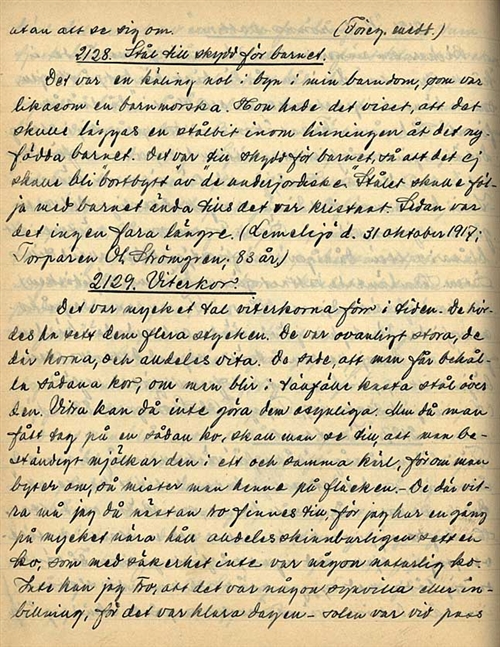 utan att se sig om. (Föreg. medt.)
2128. Stål till skydd för barnet.
Det var en käring nol i byn i min barndom, som var
likasom en barnmorska. Hon hade det viset, att det
skulle läggas en stålbit inom linningen åt det ny-
födda barnet. Det var till skydd för barnet, så att det ej
skulle bli bortbytt av "de underjordiske". Stålet skulle föl-
ja med barnet ända tills det var kristnat. Sedan var
det ingen fara längre. (Lomelsjö d. 31 oktober 1917;
Torparen Ol. Strömgren, 83 år.)
2129. Viterkor.
Det var mycket tal viterkorna förr i tiden. De
sett dem flera stycken. De var ovanligt stora, de
där korna, och alldeles vita. De sade, att man får behål-
la sådana kor, om man blir i tillfälle kasta stål över
den. Vitra kan då inte göra dem osynliga. Men då man
fått tag på en sådan ko, skall man se till, att man be-
ständigt mjölkar den i ett och samma kärl, för om man
byter om, så mister man henne på fläcken. – De där vit-
ra må jag då nästan tro finnes till för jag har en gång
på mycket nära håll alldeles skinnbarligen sett en
ko, som med säkerhet inte var någon naturlig ko.
Inte kan jag tro, att det var någon synvilla eller in-
billning, för det var klara dagen – solen var vid pass